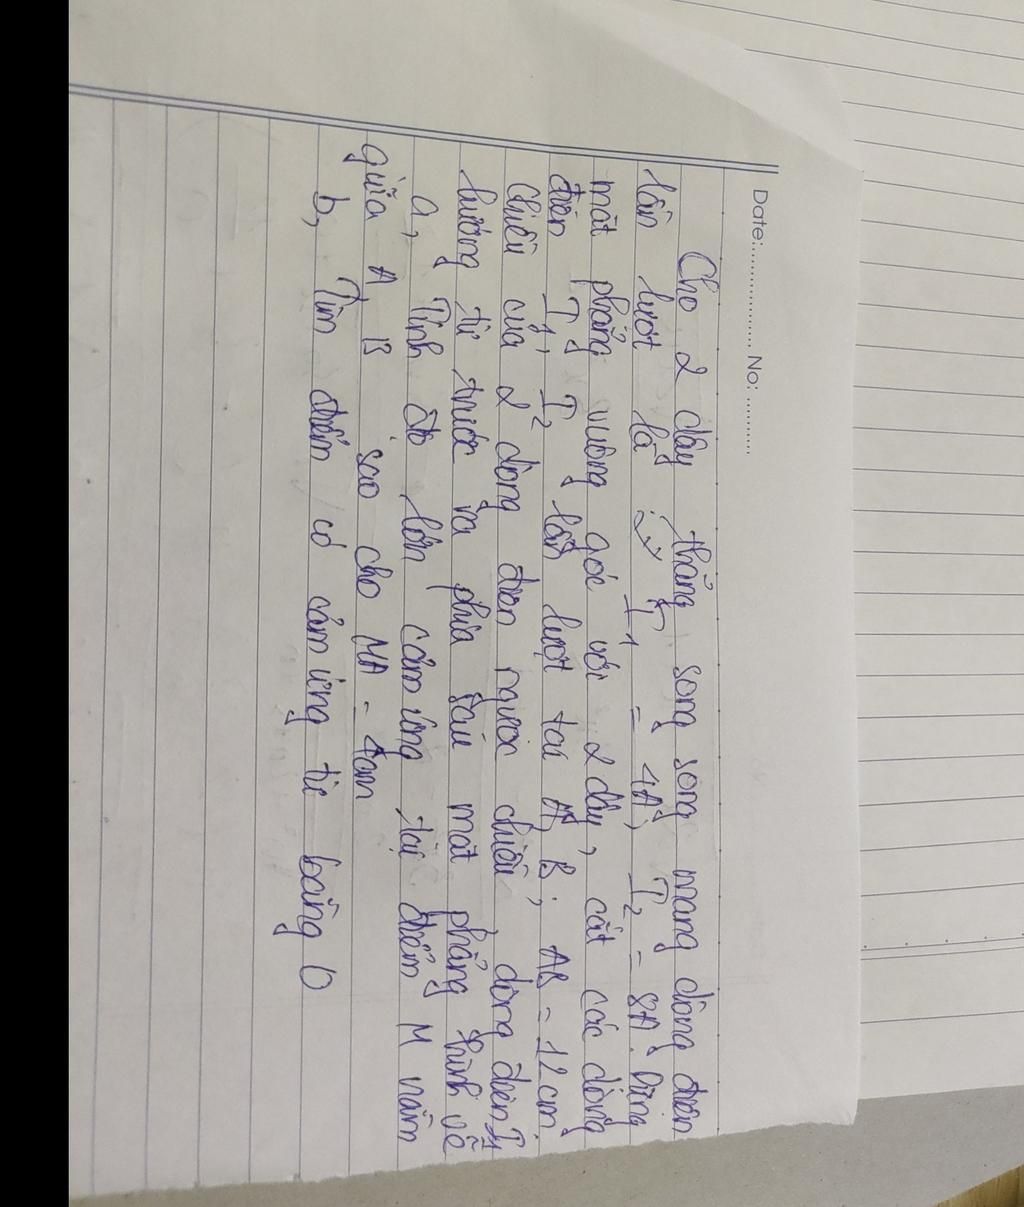 Date:.................. No: ..........
Cho 2 dây thẳng song song mang dòng điện
lần lượt là I1 = 4A, I2 = 8A. Dùng
mặt phẳng vuông góc với 2 dây, cắt các dòng
điện I1, I2 lần lượt tại A, B. AB = 12 cm.
Chiều của 2 dòng điện ngược chiều, dòng điện I1
hướng từ trước ra phía sau mặt phẳng hình vẽ
a, Tính độ lớn cảm ứng tại điểm M nằm
giữa A, B sao cho MA = 4cm
b, Tìm điểm có cảm ứng từ bằng 0